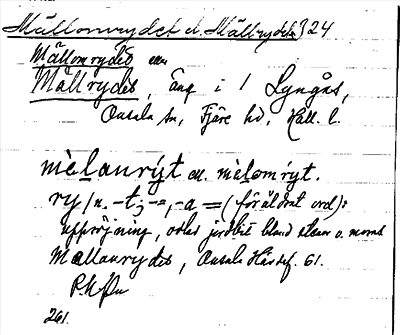 Mällomrydet el. Mällrydet 324
Mällomrydet eller
Mällrydet, Äng i 1 Lyngås,
Onsala sn, Fjäre hd, Hall. l.
mèlanrýt el. mèlomrýt.
ry/n. -t; -=, -a = (föråldrat ord):
uppröjning, odlad jordbit bland stenar o. mossar
Mellanrydet, Onsala Häradsf. 61.
261.